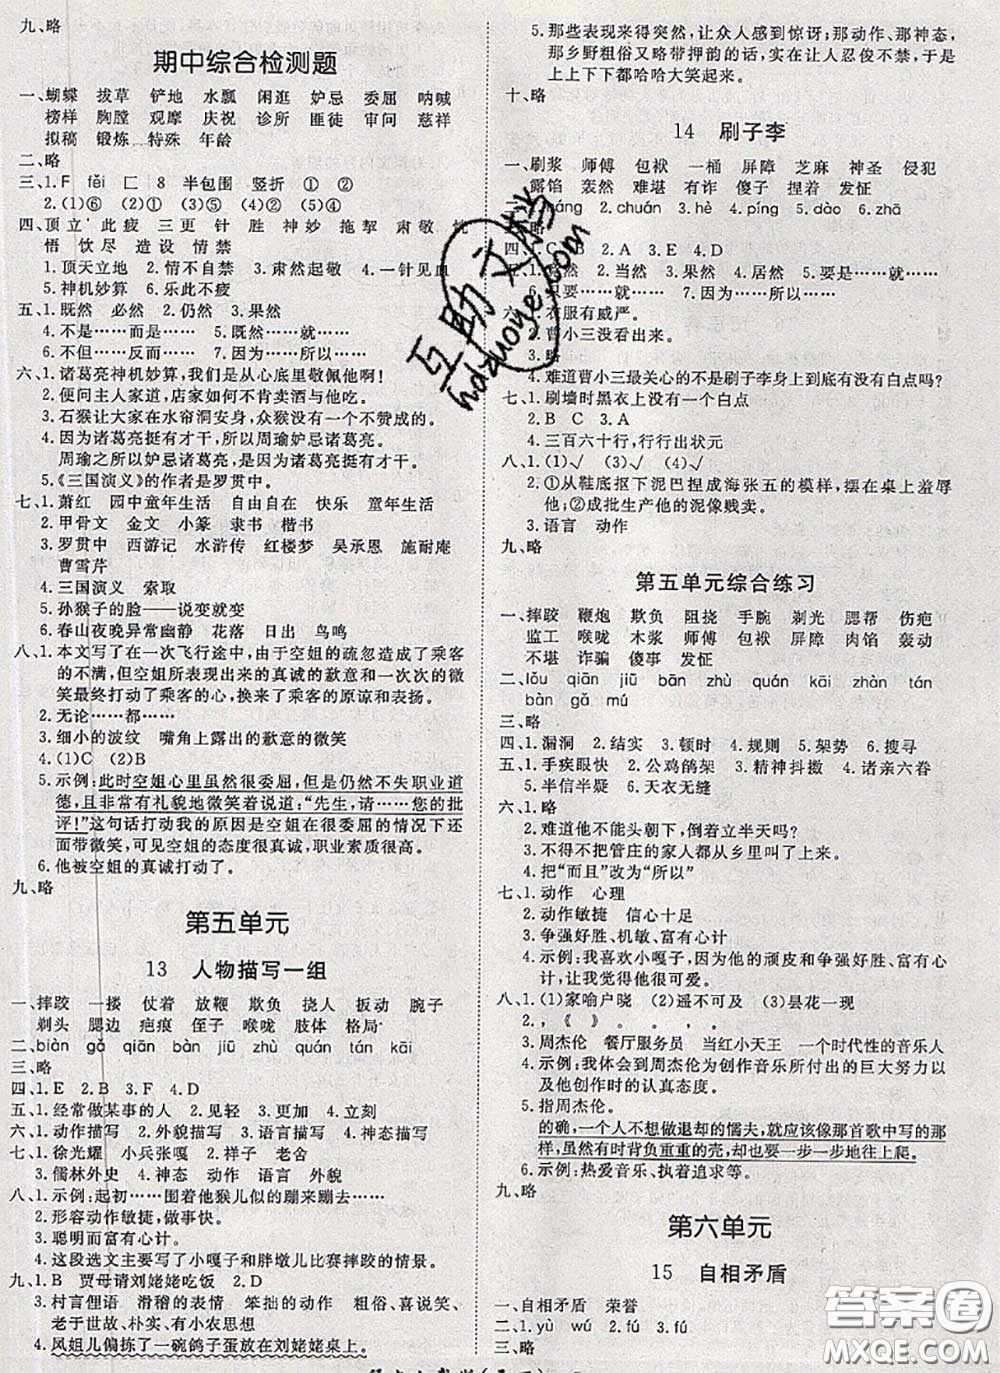 九、略
期中综合检测题
一、蝴蝶 拔草 铲地 水瓢 闲逛 妒忌 委屈 呐喊
榜样 胸膛 观摩 庆祝 诊所 匪徒 审问 慈祥
拟稿 锻炼 特殊 年龄
二、略
三、1. F fěi 匚 8 半包围 竖折 ① ②
2. (1)⑥ (2)① (3)② (4)③ (5)④
四、顶立 此疲 三更 针 胜 神妙 拖挐 肃敬
悟 饮尽 造设 情禁
1. 顶天立地 2. 情不自禁 3. 肃然起敬 4. 一针见血
5. 神机妙算 6. 乐此不疲
五、1. 既然 必然 2. 仍然 3. 果然
4. 不是……而是…… 5. 既然……就……
6. 不但……反而…… 7. 因为……所以……
六、1. 诸葛亮神机妙算,我们是从心底里敬佩他啊!
2. 便问主人家道,店家如何不肯卖酒与他吃。
3. 石猴让大家在水帘洞安身,众猴没有一个不赞成的。
4. 因为诸葛亮挺有才干,所以周瑜妒忌诸葛亮。
周瑜之所以妒忌诸葛亮,是因为诸葛亮挺有才干。
5.《三国演义》的作者是罗贯中。
七、1. 萧红 园中童年生活 自由自在 快乐 节奏生活
2. 甲骨文 金文 小篆 隶书 楷书
3. 罗贯中 西游记 水浒传 红楼梦 吴承恩 施耐庵
曹雪芹
4. 三国演义 索取
5. 孙猴子的脸——说变就变
6. 春山夜晚异常幽静 花落 日出 鸟鸣
八、1. 本文写了在一次飞行途中,由于空姐的疏忽造成了乘客
的不满,但空姐所表现出来的真诚的歉意和一次次的微
笑最终打动了乘客的心,换来了乘客的原谅和表扬。
2. 无论……都……
3. 细小的波纹 嘴角上露出的歉意的微笑
4. (1)C (2)B
5. 示例:此时空姐心里虽然很委屈,但是仍然不失职业道
德,且非常有礼貌地微笑着说道:“先生,请……您的批
评!”这句话打动我的原因是空姐在很委屈的情况下还
面带微笑,可见空姐的态度很真诚,职业素质很高。
6. 他被空姐的真诚打动了。
九、略
第五单元
13 人物描写一组
一、摔跤 一搂 仗着 放鞭 欺负 挠人 扳动 腕子
剃头 腮边 疤痕 侄子 喉咙 肢体 格局
二、biàn gǎ qiān bàn jiū zhù quán tán kāi
三、略
四、1. E 2. B 3. F 4. D
五、1. 经常做某事的人 2. 见轻 3. 更加 4. 立刻
六、1. 动作描写 2. 外貌描写 3. 语言描写 4. 神态描写
七、1. 徐光耀 小兵张嘎 2. 样子 老舍
3. 儒林外史 4. 神态 动作 语言 外貌
八、1. 示例:起初……围着他猴儿似的蹦来蹦去……
2. 形容动作敏捷,做事快。
3. 聪明而富有心计。
4. 这段选文主要写了小嘎子和胖墩儿比赛摔跤的情景。
九、1. B 贾母请刘姥姥吃饭 2. D
3. 村言俚语 滑稽的表情 笨拙的动作 粗俗、喜欢说笑、
老于世故、朴实、有小农思想
4. 凤姐儿偏拣了一碗鸽子蛋放在刘姥姥桌上。
5. 那些表现来得突然,让众人感到惊讶;那动作、那神态,
那乡野粗俗又略带押韵的话,实在让人忍俊不禁,于是
上上下下都哈哈大笑起来。
十、略
14 刷子李
一、刷浆 师傅 包袱 一桶 屏障 芝麻 神圣 侵犯
露馅 轰然 难堪 有诈 傻子 捏着 发怔
2. chuán 3. hè 4. píng 5. dào 6. zhā
略
四、1. C B 2. A 3. E 4. D
1. 然 2. 当然 3. 果然 4. 居然 5. 要是……就……
6. 只要……就…… 7. 因为……所以……
六、1. 衣服有威严。
2. 曹小三没看出来。
3. 略
4. 难道曹小三最关心的不是刷子李身上到底有没有白点吗?
七、1. 刷墙时黑衣上没有一个白点
2. B C 3. A
4. 三百六十行,行行出状元
八、1. (1)√ (4)√
2. ①从鞋底抠下泥巴捏成海张五的模样,摆在桌上羞辱
他;②成批生产他的泥像贱卖。
3. 语言 动作
九、略
第五单元综合练习
一、摔跤 鞭炮 欺负 阻挠 手腕 剃光 腮帮 伤疤
监工 喉咙 木浆 师傅 包袱 屏障 肉馅 轰动
不堪 诈骗 傻事 发怔
二、lǒu qiān jiū bān zhù quán kāi zhàn tán
bàn gǎ mú
三、略
四、1. 漏洞 2. 结实 3. 顿时 4. 规则 5. 架势 6. 搜寻
五、1. 手疾眼快 2. 公鸡鹐架 3. 精神抖擞 4. 诸亲六眷
5. 半信半疑 6. 天衣无缝
六、1. 略
2. 难道他不能头朝下,倒着立半天吗?
3. 不得不把管庄的家人都从乡里叫了上来。
4. 把“而且”改为“所以”
七、1. 动作 心理
2. 动作敏捷 信心十足
3. 争强好胜、机敏、富有心计
4. 示例:我喜欢小嘎子,因为他的顽皮和争强好胜、富有心计,
让我觉得他很可爱。
八、1. (1)家喻户晓 (2)遥不可及 (3)昙花一现
2. , 《 》 。 。 ,
3. 周杰伦 餐厅服务员 当红小天王 一个时代性的音乐人
4. 示例:我体会到周杰伦为创作音乐所付出的巨大努力以
及他创作时的认真态度。
5. 指周杰伦。
的确,一个人不想做退却的懦夫,就应该像那首歌中写的那
样,虽然有时背负重重的壳,却也要一步一步地往上爬。
6. 示例:热爱音乐、执着追求等。
九、略
第六单元
15 自相矛盾
一、自相矛盾 荣誉
二、1. yù wú 2. fú 3. fú
三、略
互助文档
hdzuoye.com
答案圈
MXQE.COM